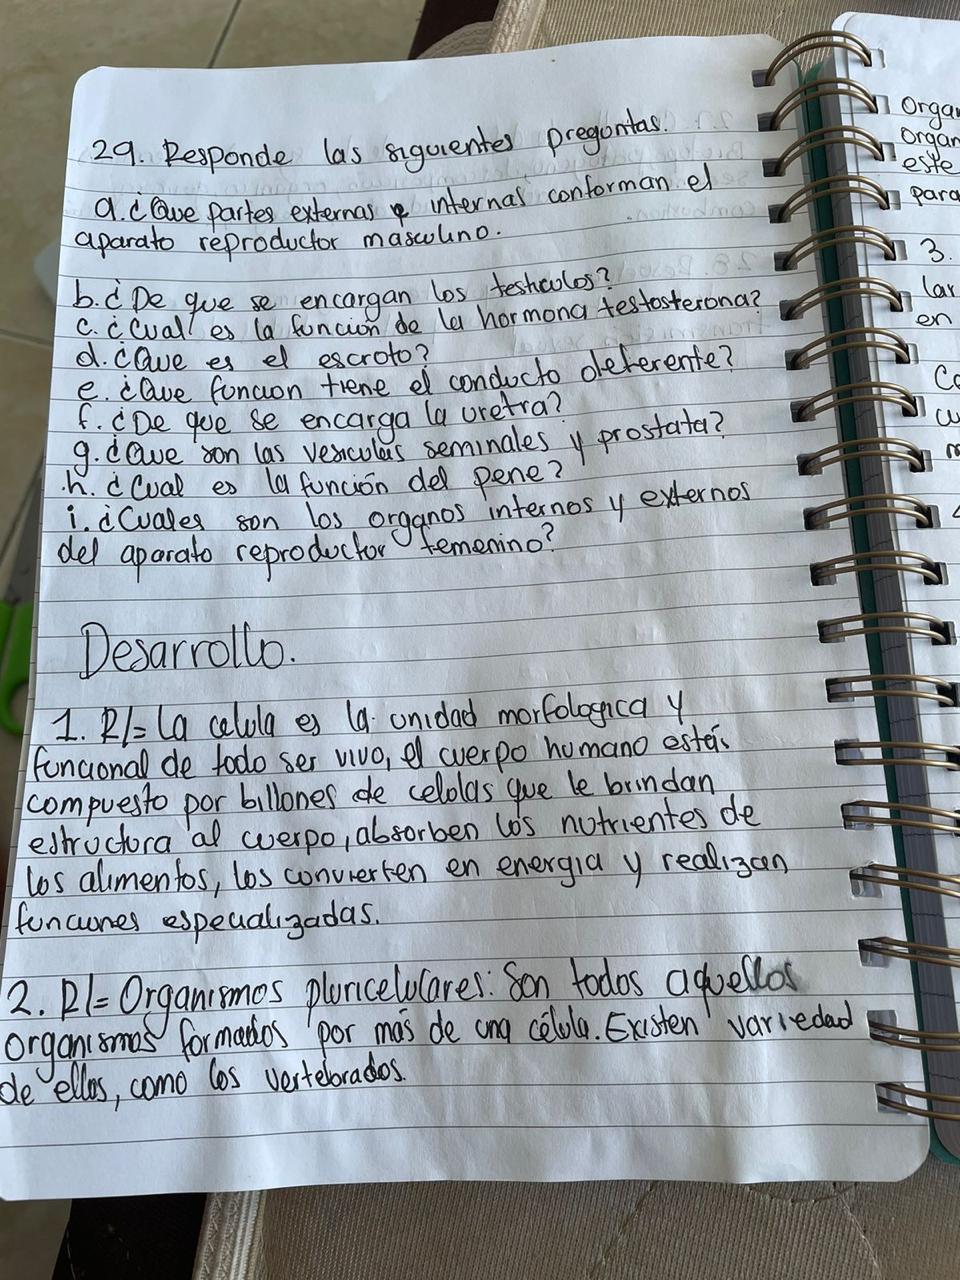 29. Responde las siguientes preguntas.
a. ¿Que partes externas e internas conforman el
aparato reproductor masculino.
b. ¿De que se encargan los testiculos?
c. ¿Cual es la función de la hormona testosterona?
d. ¿Que es el escroto?
e. ¿Que funcion tiene el conducto deferente?
f. ¿De que se encarga la uretra?
g. ¿Que son las vesiculas seminales y prostata?
h. ¿Cual es la función del pene?
i. ¿Cuales son los organos internos y externos
del aparato reproductor femenino?
Desarrollo.
1. R/= La celula es la unidad morfologica y
funcional de todo ser vivo, el cuerpo humano estás
compuesto por billones de celolas que le brindan
estructura al cuerpo, absorben los nutrientes de
los alimentos, los convierten en energia y realizan
funciones especializadas.
2. R/= Organismos pluricelulares: Son todos aquellos
organismos formados por más de una célula. Existen variedad
de ellos, como los vertebrados.
este
para
3.
en